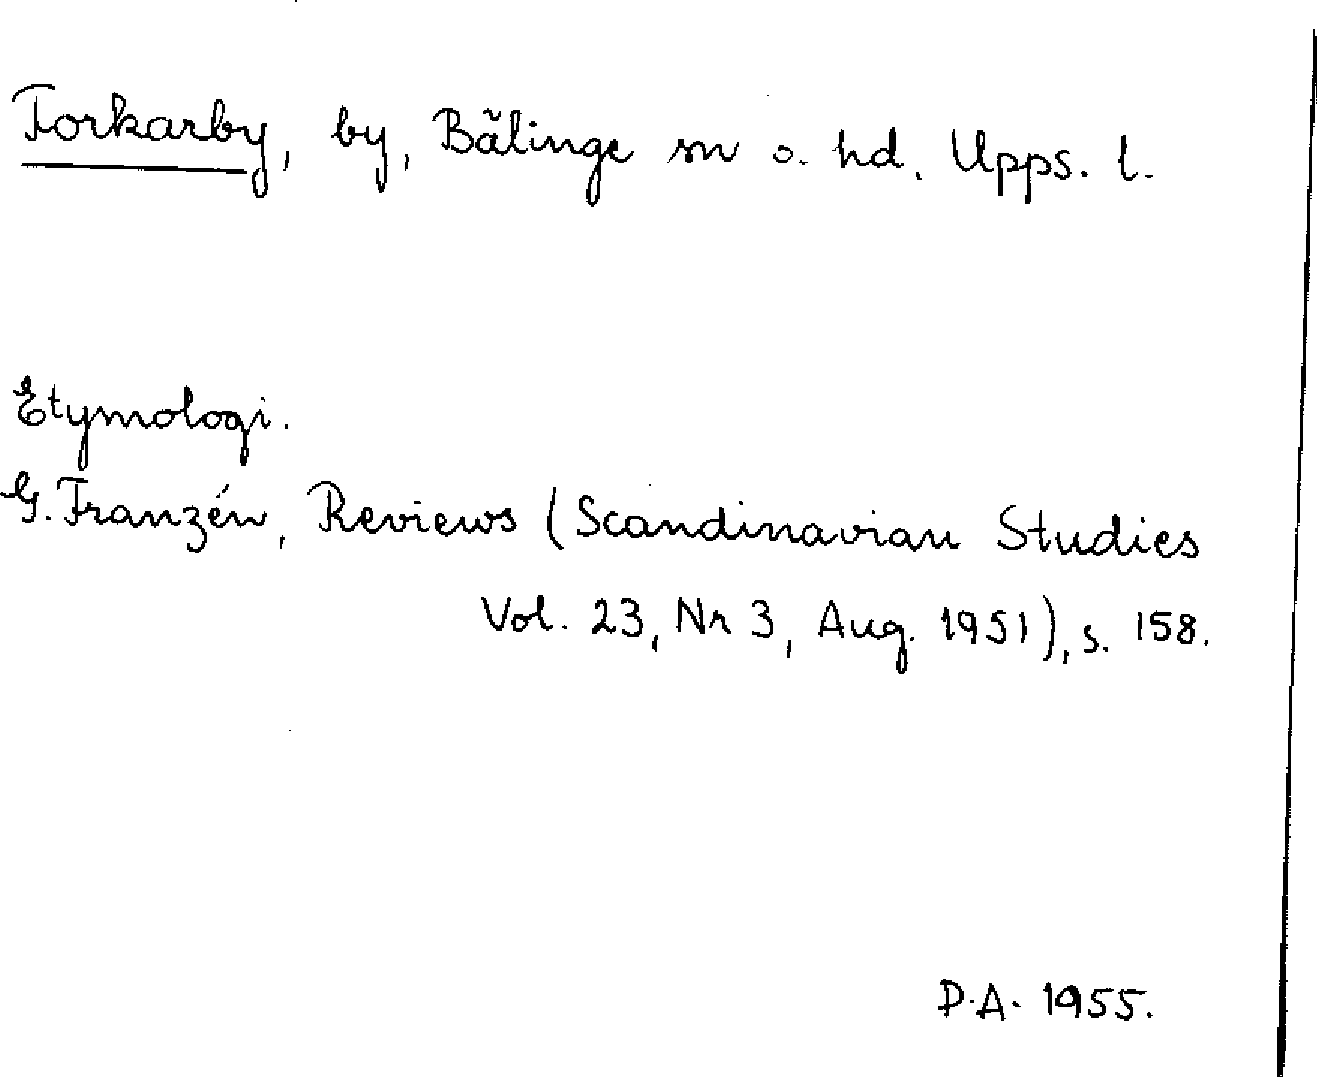 Forkarby, by, Bälinge sn o. hd. Upps. l.
Etymologi.
G. Franzén, Reviews (Scandinavian Studies
Vol. 23, Nr 3, Aug. 1951), s. 158.
D.A. 1955.